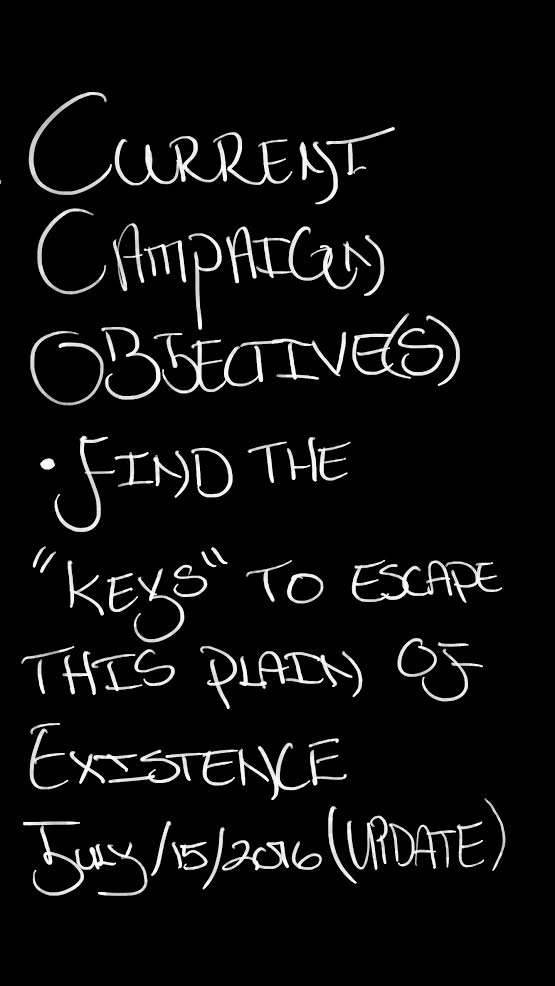 CURRENT
CAMPAIGN
OBJECTIVE(S)
• FIND THE
"KEYS" TO ESCAPE
THIS PLAIN OF
EXISTENCE
JULY/15/2016 (UPDATE)